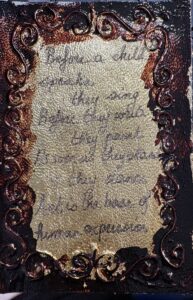 Before a child
speaks,
they sing
Before they write
they paint
As soon as they stand
they dance
Art is the base of
human expression